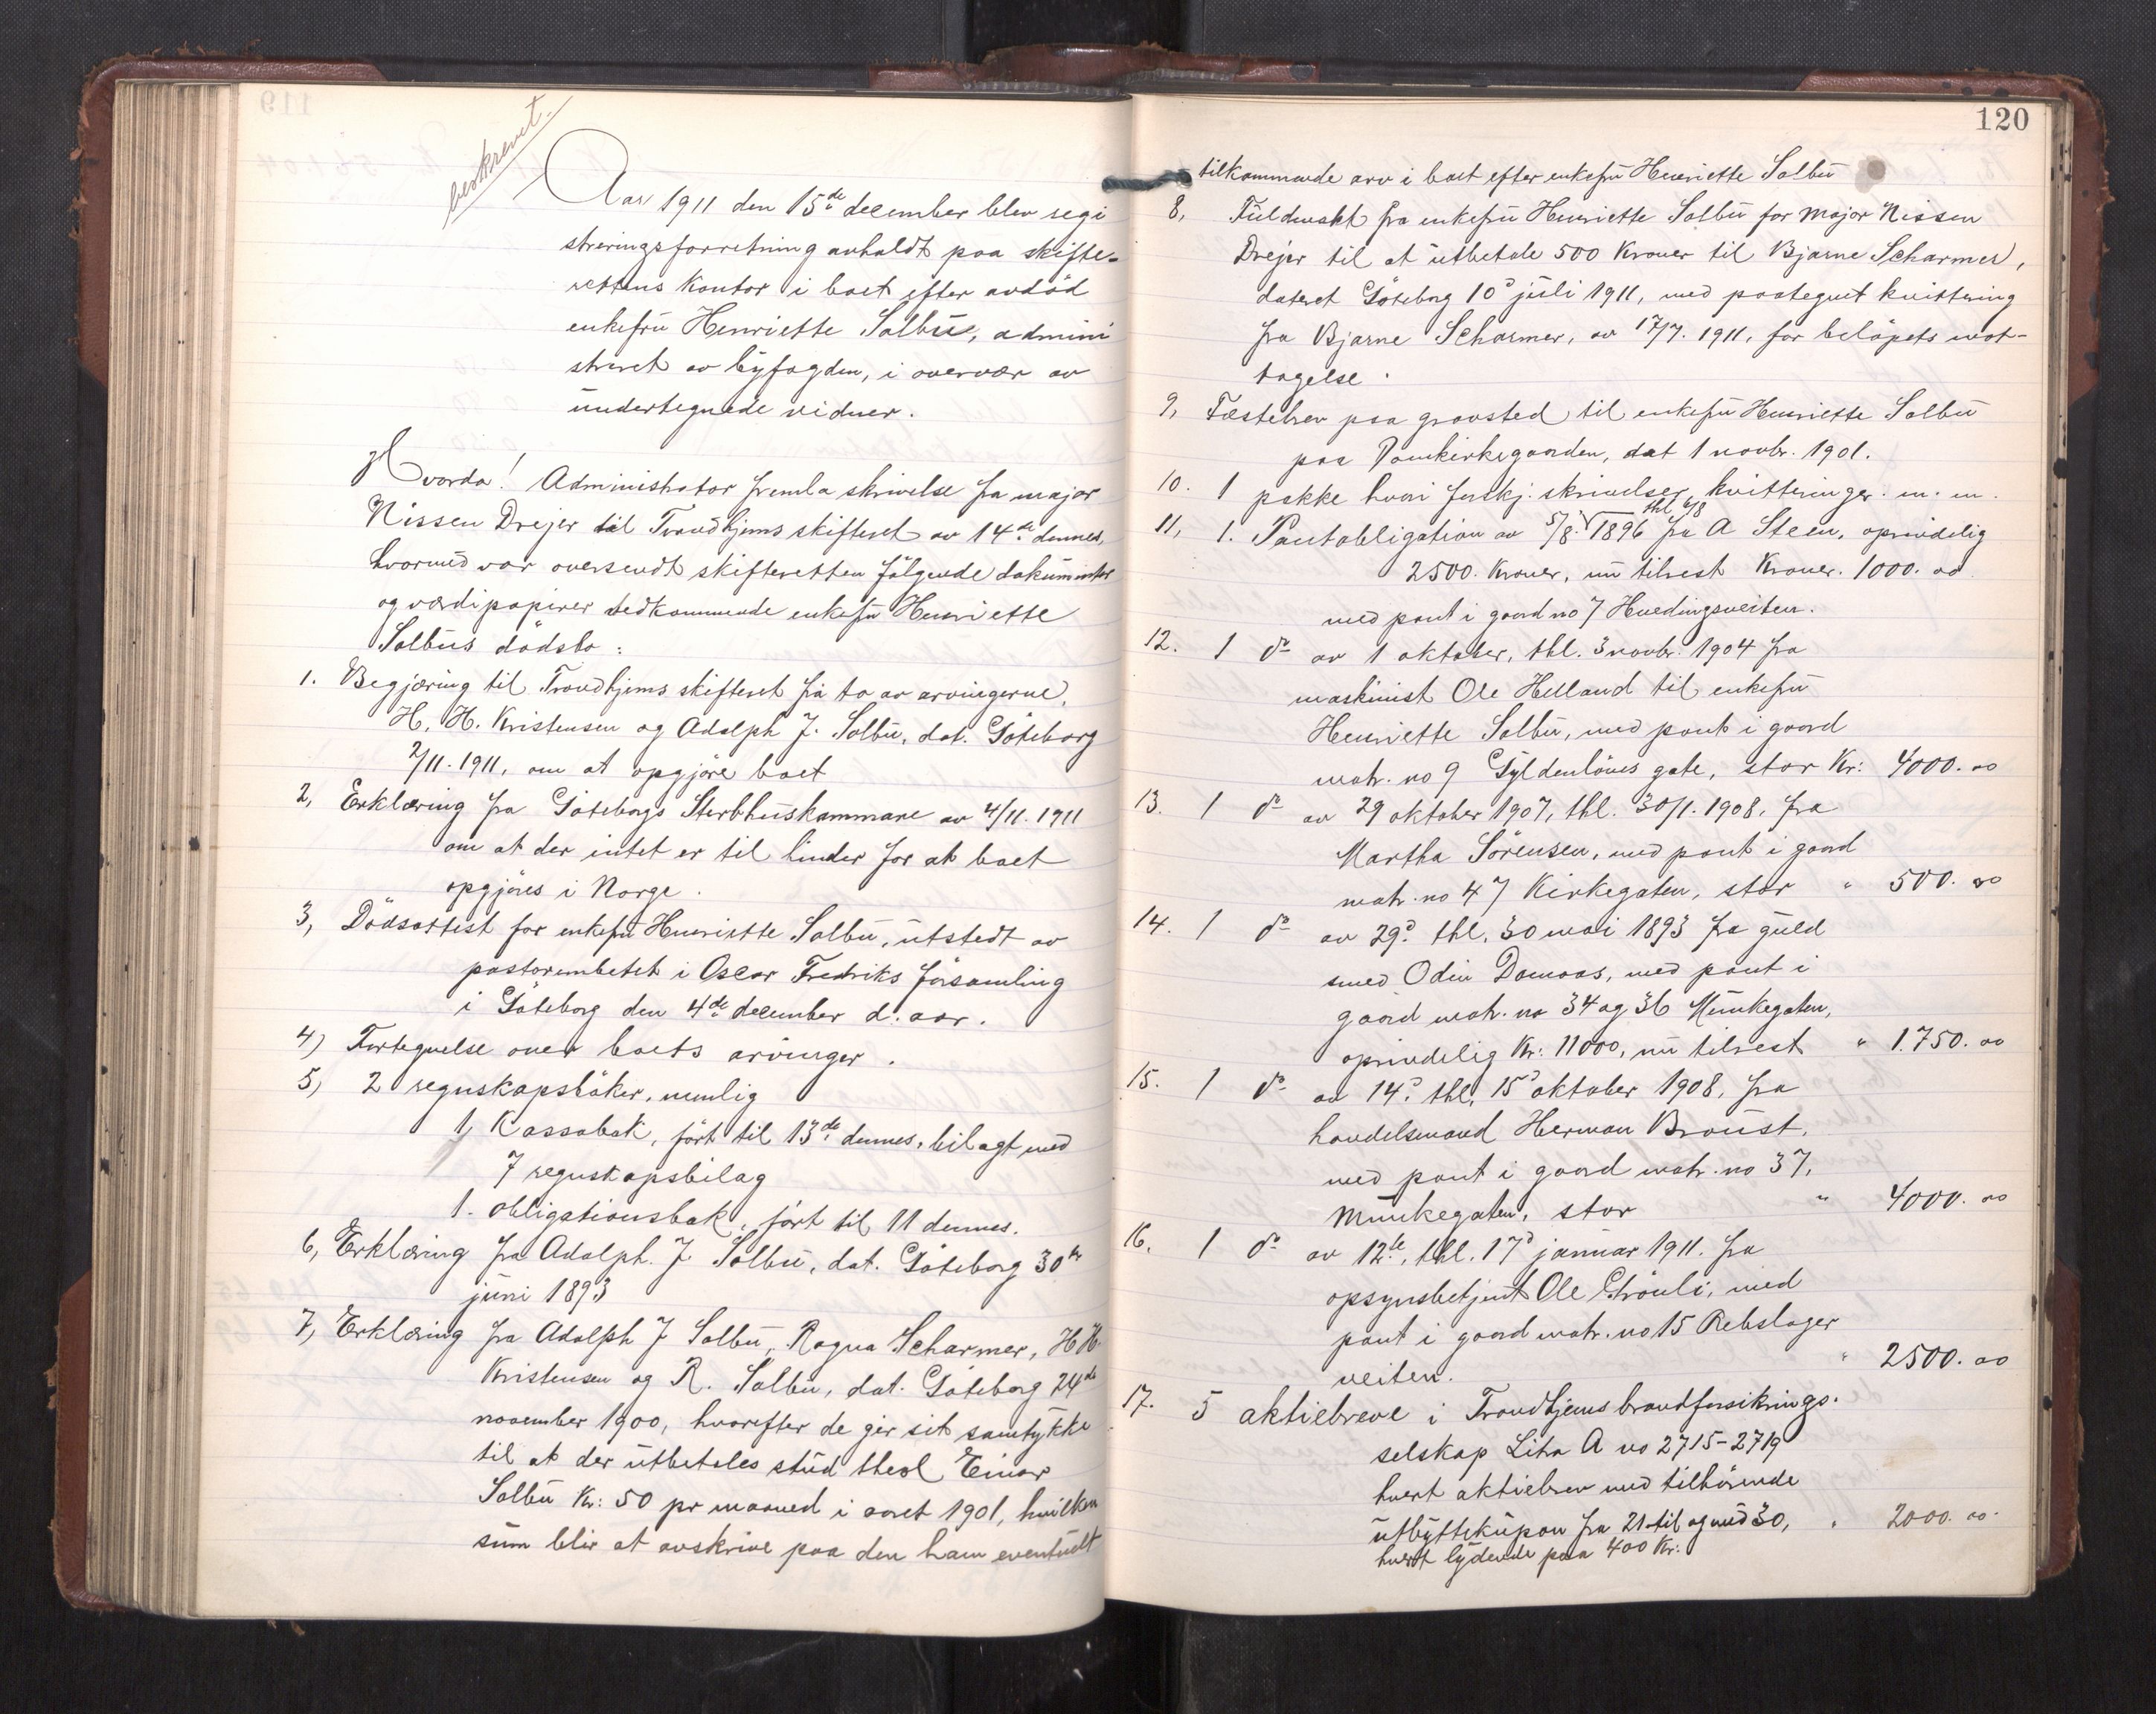 beskrevet.
Aar 1911 den 15de december blev regi
streringsforretning avholdt paa skifte-
rettens kontor i boet efter avdød
enkefru Henriette Solbu, admini
streret av byfogden, i overvær av
undertegnede vidner.
Hvorda! Administrator fremla skrivelse fra major
Nissen Drejer til Trondhjems skifteret av 14de dennes,
hvormed var oversendt skifteretten følgende dokumenter
og værdipapirer vedkommende enkefru Henriette
Solbus dødsbo:
1. Begjæring til Trondhjems skifteret fra to av arvingerne,
H. H. Kristensen og Adolph J. Solbu, dat. Göteborg
2/11. 1911, om at opgjøre boet
2, Erklæring fra Göteborgs Sterbhuskammare av 4/11. 1911
om at der intet er til hinder for at boet
opgjøres i Norge.
3, Dödsattest for enkefru Henriette Solbu, utstedt av
pastorembetet i Oscar Fredriks församling
i Göteborg den 4de december d. aar.
4) Fortegnelse over boets arvinger.
5) 2 regnskapsbøker, nemlig
1, Kassabok, ført til 13de dennes, bilagt med
7 regnskapsbilag
1. obligationsbok, ført til 11 dennes.
6, Erklæring fra Adolph. J Solbu, dat. Göteborg 30te
juni 1893
7, Erklæring fra Adolph J Solbu, Ragna Scharmer, H H.
Kristensen og R. Solbu, dat. Göteborg 24de
november 1900, hvorefter de gir sit samtykke
til at der utbetales stud theol Einar
Solbu Kr: 50 pr maaned i aaret 1901, hvilken
sum blir at avskrive paa den ham eventuelt
120
tilkommende arv i boet efter enkefru Henriette Solbu
8, Fuldmakt fra enkefru Henriette Solbu for Major Nissen
Drejer til at utbetale 500 Kroner til Bjarne Scharmer,
dateret Göteborg 10d juli 1911, med paategnet kvittering
fra Bjarne Scharmer, av 17/7. 1911, for beløpets mot-
tagelse.
9, Fæstebrev paa gravsted til enkefru Henriette Solbu
paa Domkirkegaarden, dat 1 novbr. 1901.
10. 1 pakke hvori forskj. skrivelser, kvitteringer. m. m.
11, 1. Pantobligation av 5/8. thl 6/8 1896 fra A Steen, oprindelig
2500. Kroner, nu tilrest Kroner. 1000. oo
med pant i gaard no 7 Hvedingsveiten.
12. 1 do av 1 oktober, thl. 3 novbr. 1904 fra
maskinist Ole Helland til enkefru
Henriette Solbu, med pant i gaard
matr. no 9 Gyldenløves gate, stor Kr: 4000. oo
13. 1 do av 29 oktober 1907, thl. 30/1. 1908, fra
Martha Sörensen, med pant i gaard
matr. no 47 Kirkegaten, stor " 500. oo
14. 1 do av 29d. thl. 30 mai 1893 fra guld
smed Odin Damaas, med pant i
gaard matr. no 34 og 36 Munkegaten,
oprindelig Kr: 11000, nu tilrest " 1.750. oo
15. 1 do av 14d. thl. 15d oktober 1908, fra
handelsmand Herman Broust,
med pant i gaard matr. no 37,
Munkegaten, stor " 4000. oo
16. 1 do av 12te, thl. 17d januar 1911. fra
opsynsbetjent Ole Grönli, med
pant i gaard matr. no 15 Rebslager
veiten. " 2500. oo
17. 5 aktiebreve i Trondhjems brandforsikrings.
selskap Litra A no 2715-2719
hvert aktiebrev med tilhørende
utbyttekupon fra 21 til og med 30, " 2000. oo.
hvert lydende paa 400 Kr: